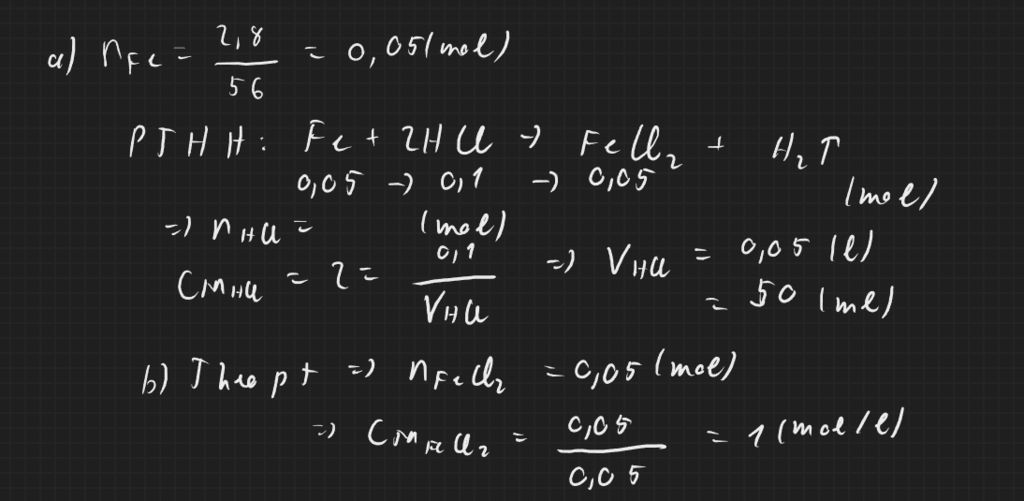 a) nFe = 2,8 / 56 = 0,05 (mol)
PTHH: Fe + 2HCl → FeCl₂ + H₂↑
0,05 → 0,1 → 0,05 (mol)
=> nHCl = (mol)
CMHCl = 2 = 0,1 / VHCl => VHCl = 0,05 (l)
= 50 (ml)
b) Theo pt => nFeCl₂ = 0,05 (mol)
=> CMFeCl₂ = 0,05 / 0,05 = 1 (mol/l)